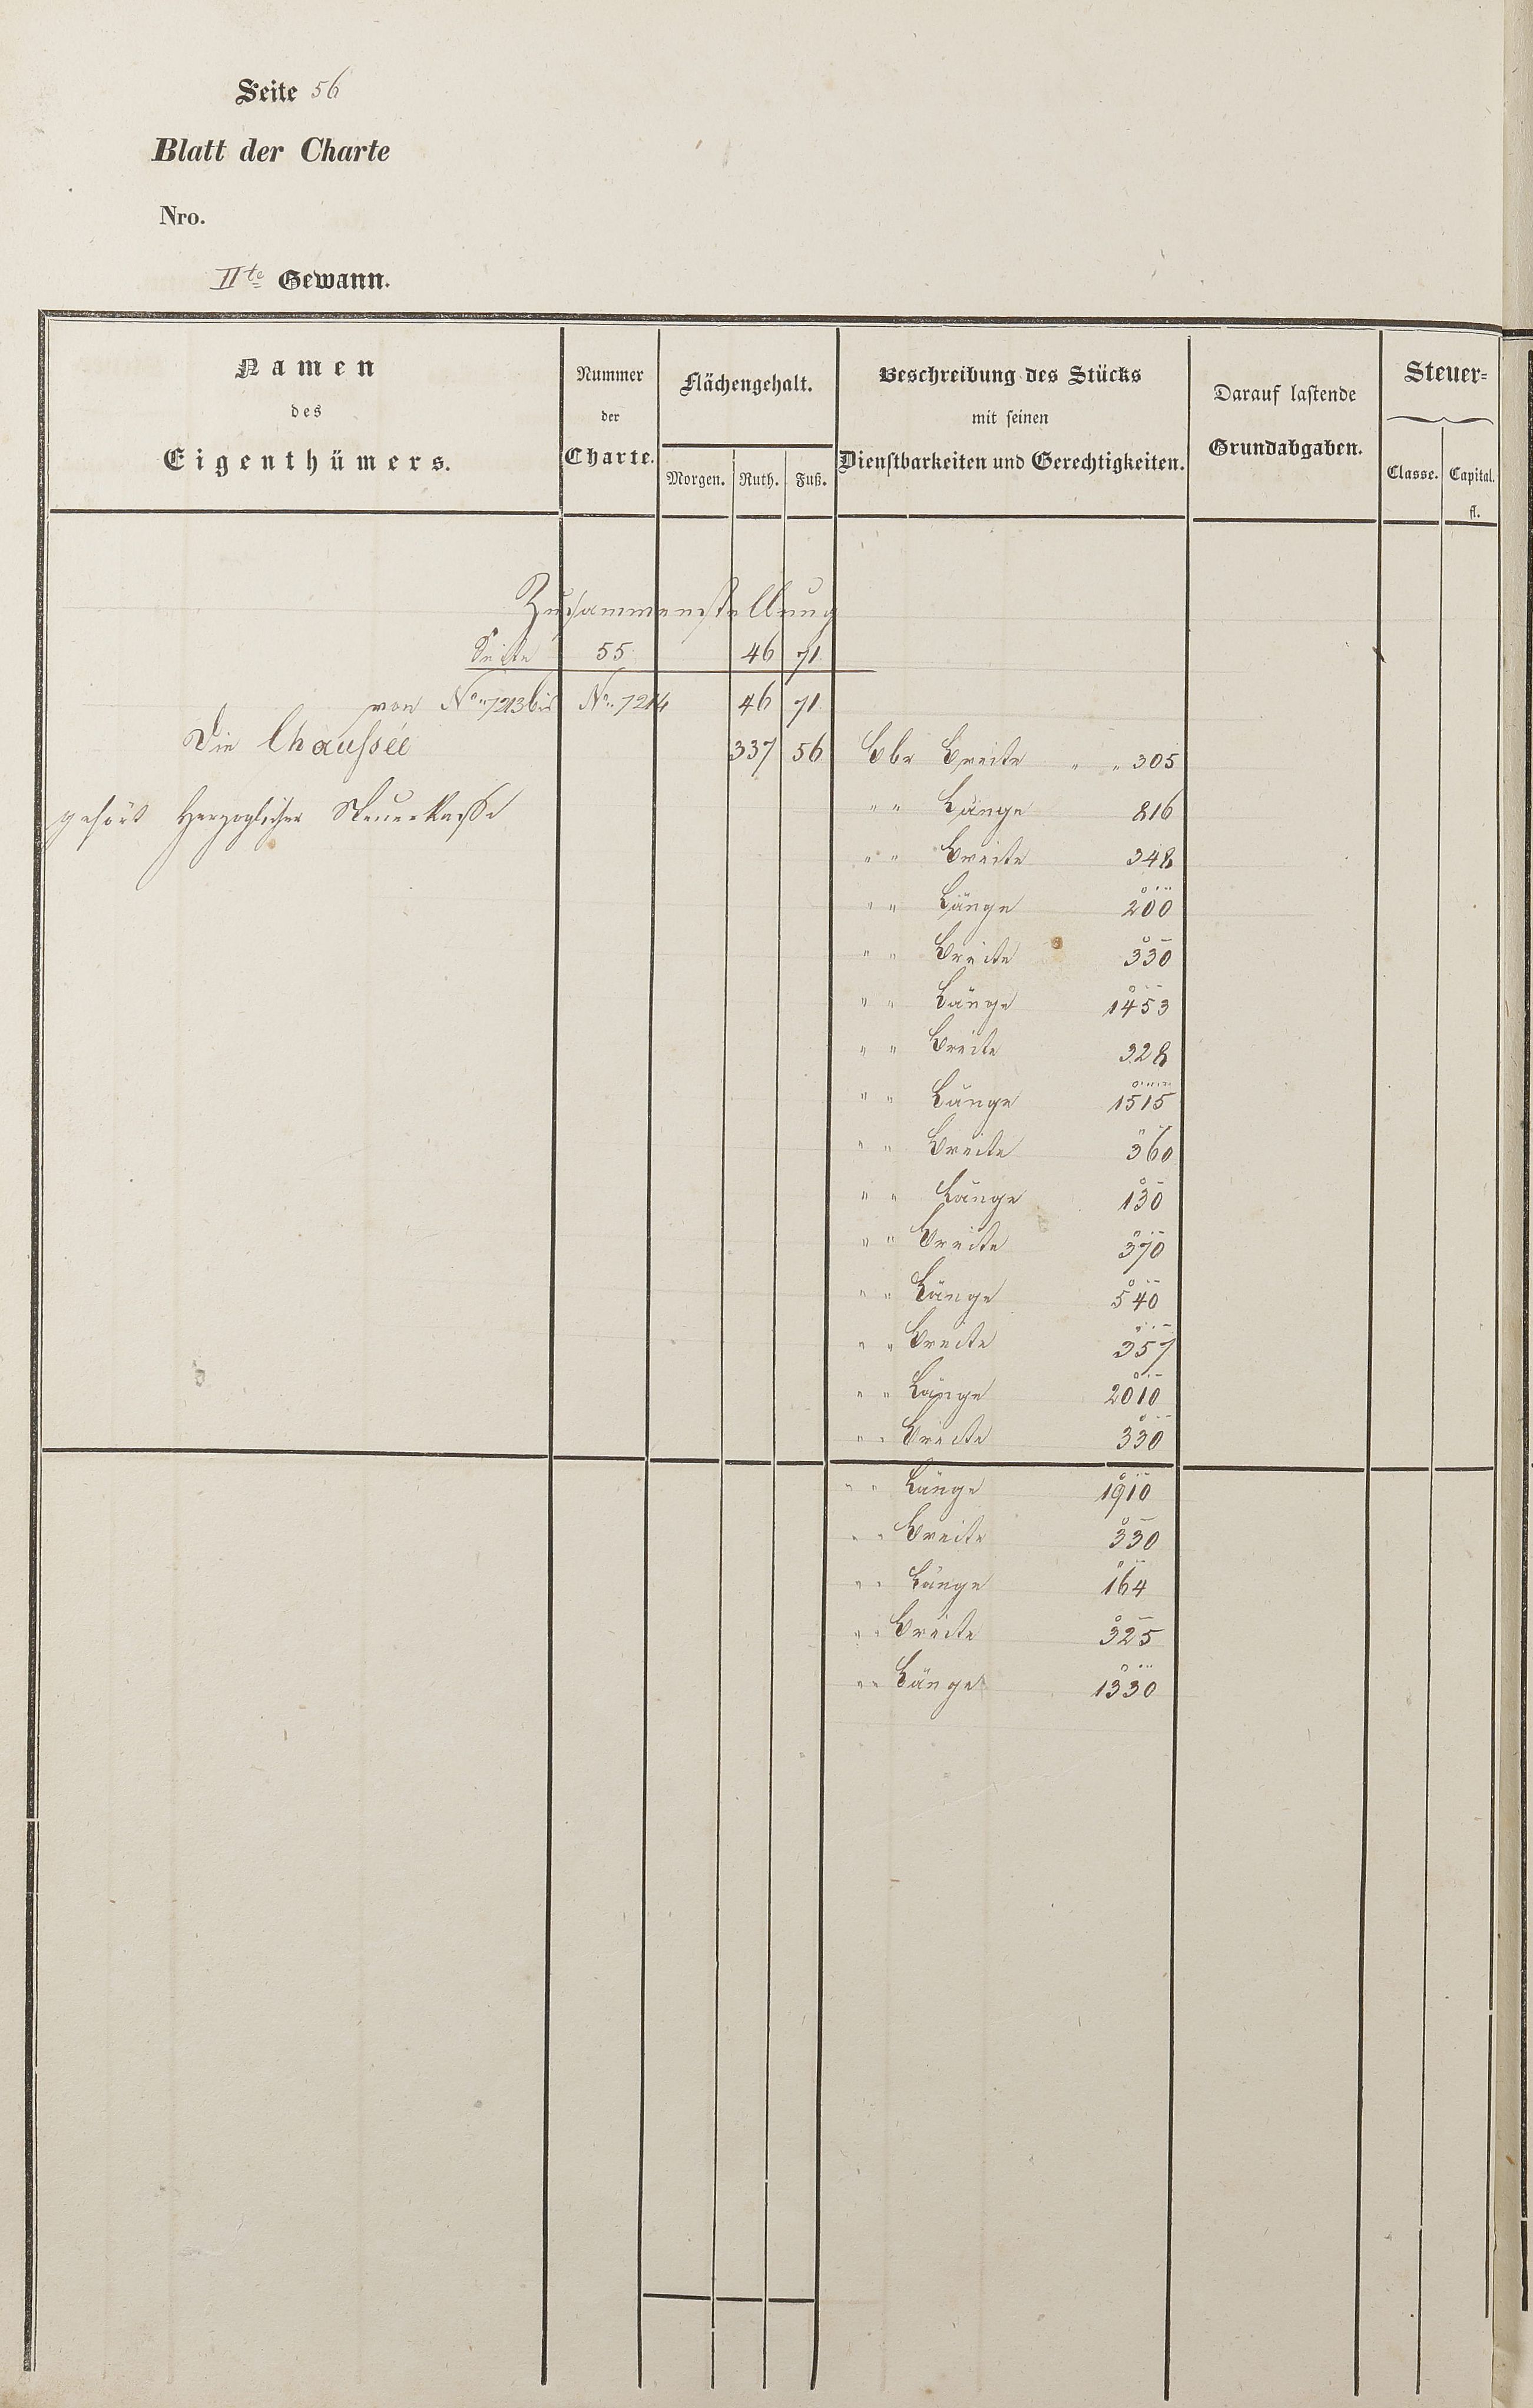 Seite 56
Blatt der Charte
Nro.
IIte Gewann.
Namen des Eigenthümers.
Nummer der Charte.
Flächengehalt.
Morgen. Ruth. Fuß.
Beschreibung des Stücks mit seinen Dienstbarkeiten und Gerechtigkeiten.
Darauf lastende Grundabgaben.
Steuer=
Classe. Capital.
fl.
Zusammenstellung
Seite 55 46 71
von No. 7213 bis No. 7214 46 71
Die Chaussée 337 56 Obr Breite " " 305
gehört Herzoglicher Steuerkasse " " Länge 816
" " Breite 348
" " Länge 200
" " Breite 330
" " Länge 1453
" " Breite 328
" " Länge 1515
" " Breite 360
" " Länge 130
" " Breite 370
" " Länge 540
" " Breite 357
" " Länge 2010
" " Breite 330
" " Länge 1910
" " Breite 330
" " Länge 164
" " Breite 325
" " Länge 1330